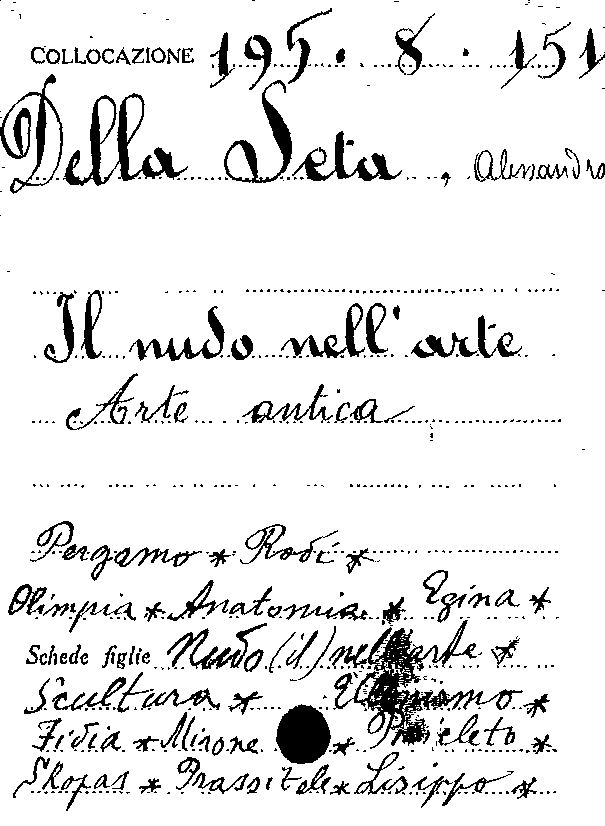 COLLOCAZIONE 195. 8. 151
Della Seta, Alessandro
Il nudo nell'arte
Arte antica
Pergamo * Rodi *
Olimpia * Anatomia * Egina *
Schede figlie Nudo (il) nell'arte *
Scultura * Ellenismo *
Fidia * Mirone * Policleto *
Skopas * Prassitele * Lisippo *